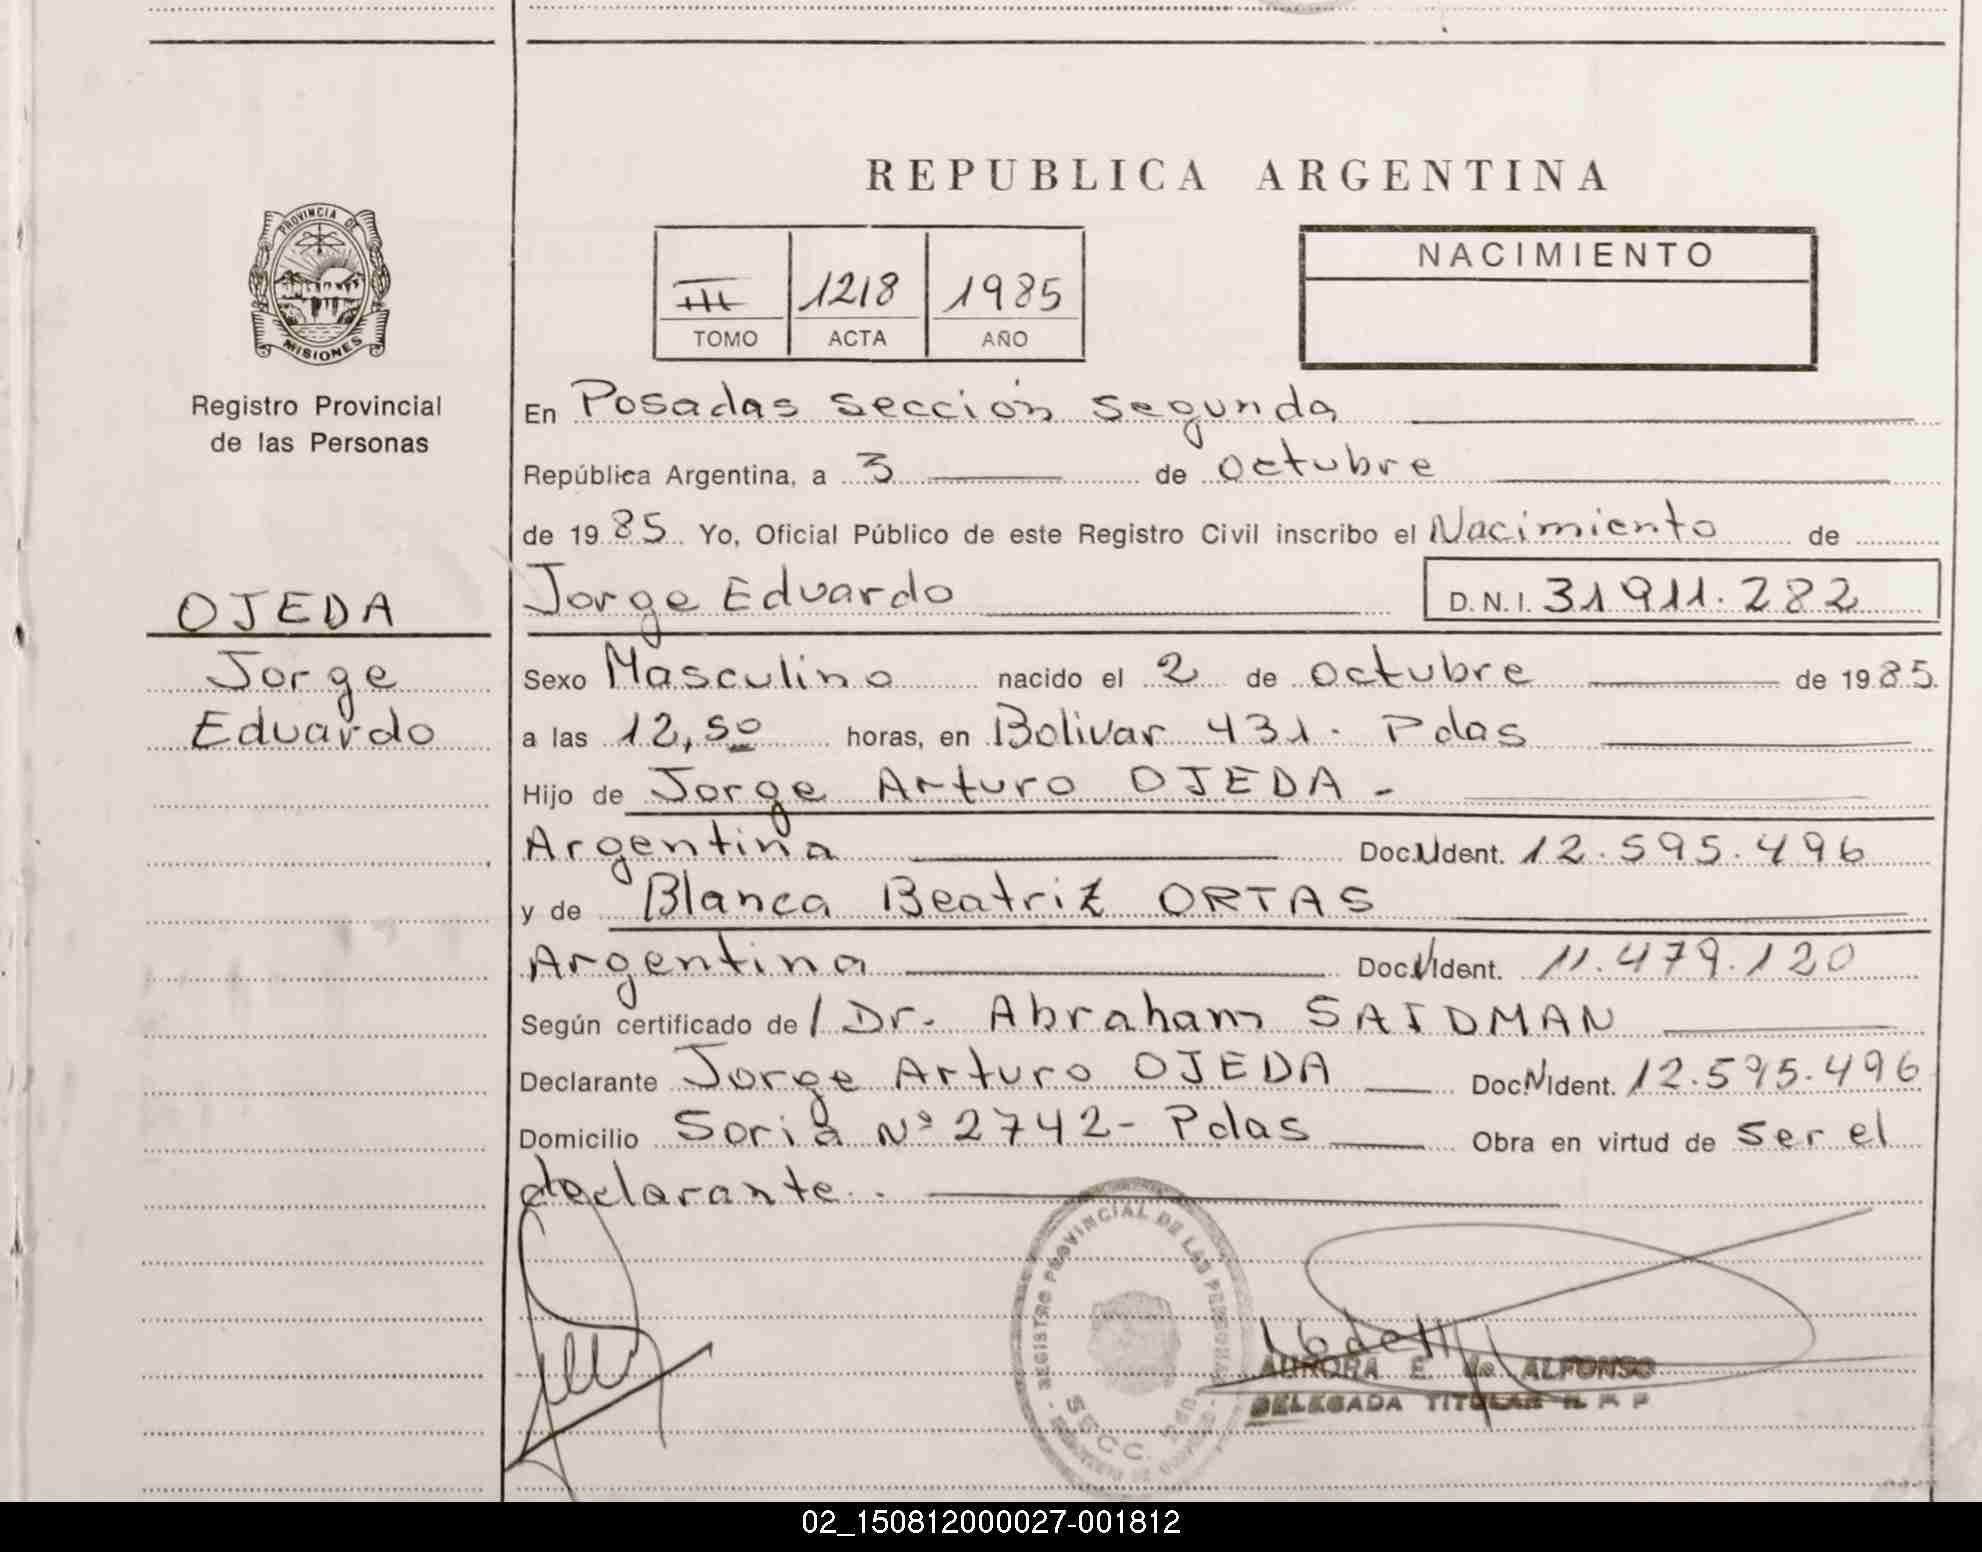 REPUBLICA ARGENTINA
PROVINCIA DE
MISIONES
III 1218 1985
TOMO ACTA AÑO
NACIMIENTO
Registro Provincial
de las Personas
OJEDA
Jorge
Eduardo
En Posadas sección segunda
República Argentina, a 3 de octubre
de 1985 Yo, Oficial Público de este Registro Civil inscribo el Nacimiento de
Jorge Eduardo D.N.I. 31911.282
Sexo Masculino nacido el 2 de octubre de 1985.
a las 12,50 horas, en Bolivar 431. Pdas
Hijo de Jorge Arturo OJEDA -
Argentina Doc. Ident. 12.595.496
y de Blanca Beatriz ORTAS
Argentina Doc. Ident. 11.479.120
Según certificado de / Dr. Abraham SAIDMAN
Declarante Jorge Arturo OJEDA Doc. Ident. 12.595.496
Domicilio Soria Nº 2742- Pdas Obra en virtud de ser el
declarante.
REGISTRO PROVINCIAL DE LAS PERSONAS
AURORA E. de ALFONSO
DELEGADA TITULAR R. P. P
02_150812000027-001812